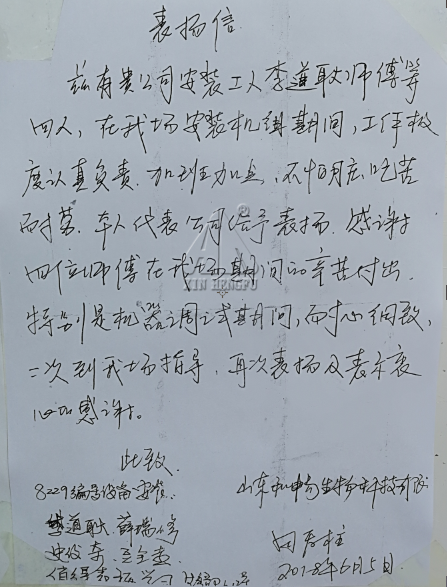 表扬信
兹有贵公司安装工人李道耿师傅等
四人,在我场安装机组期间,工作极
度认真负责.加班加点,不怕吃苦
耐劳.本人代表公司给予表扬.感谢
四位师傅在我场期间的辛苦付出.
XIN HENGFU
特别是机器调试期间,耐心细致,
二次到我场指导,再次表扬及表示衷
心加感谢.
此致
8229编号设备安装.
山东 生物科技有限
道耿 薛瑞修
2018年6月5日.